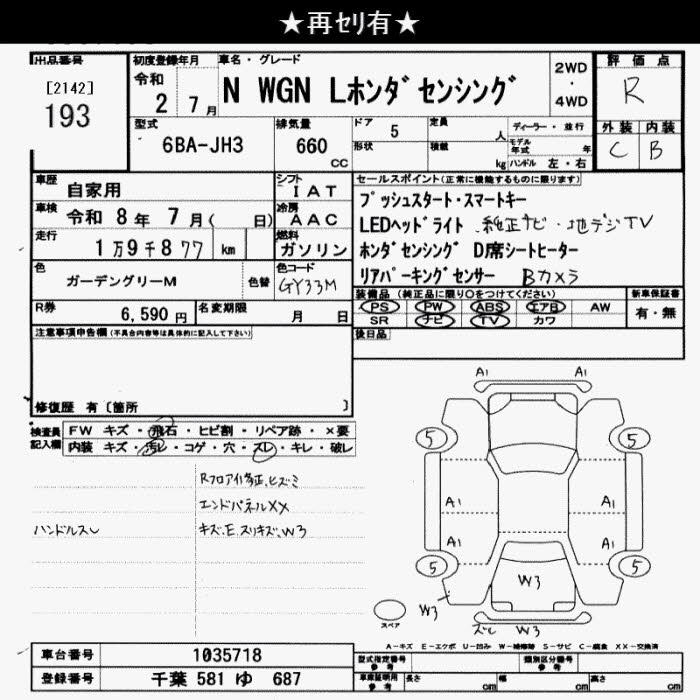 ★再セリ有★
出品番号
[2142]
193
初度登録年月
令和
2 7月
車名・グレード
N WGN Lホンダセンシング
2WD
・
4WD
評価点
R
外装 内装
C B
型式
6BA-JH3
排気量
660
cc
ドア 5
形状
定員
人
積載
kg
ディーラー・並行
モデル年式 年
ハンドル 左・右
車歴
自家用
シフト
IAT
車検
令和 8年 7月( 日)
冷房
AAC
走行
1万9千877 km
燃料
ガソリン
色
ガーデングリーM
色替
色コード
GY33M
R券
6,590円
名変期限
月 日
セールスポイント(正常に機能するものに限ります)
プッシュスタート・スマートキー
LEDヘッドライト .純正ナビ・地デジTV
ホンダセンシング D席シートヒーター
リアパーキングセンサー Bカメラ
装備品(純正品に限り○をつけてください)
PS PW ABS エアB AW
SR ナビ TV カワ
新車保証書
有・無
後日品
注意事項申告欄(不具合内容等は具体的に記入して下さい)
修復歴 有〔箇所 〕
検査員
記入欄
FW キズ・飛石・ヒビ割・リペア跡・×要
内装 キズ・汚レ・コゲ・穴・スレ・キレ・破レ
Rフロアイタ修正,ヒズミ
エンドパネルXX
ハンドルスレ
キズ.E.スリキズ.W3
A1 A1
5 5
A1 A1
A1 A1
5 5
W3
W3
スペア
ズレ W3
A-キズ E-エクボ U-凹み W-補修跡 S-サビ C-腐食 XX-交換済
車台番号
1035718
登録番号
千葉 581 ゆ 687
型式指定番号
参考
類別区分番号
参考
車庫証明用
参考
長さ cm
幅 cm
高さ cm